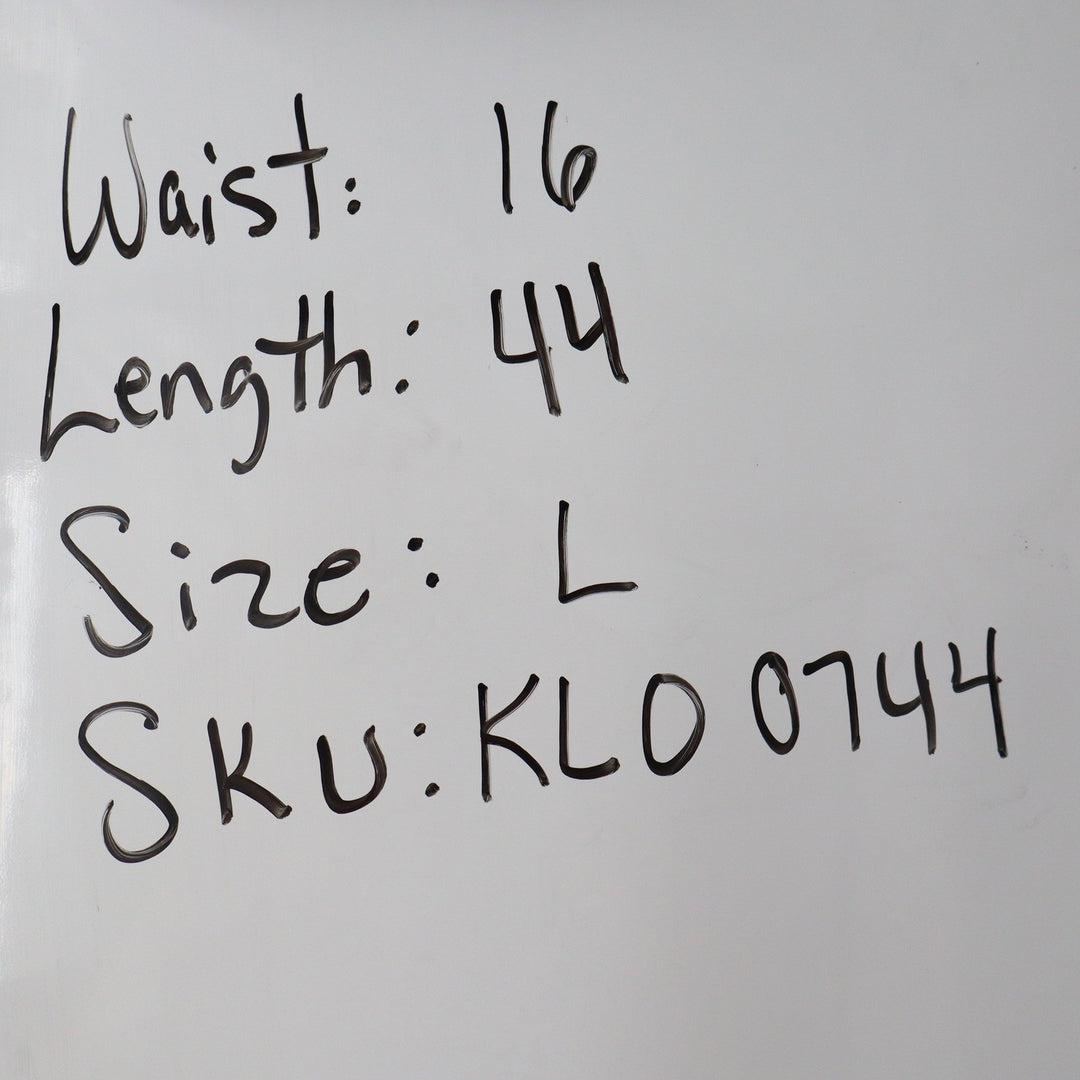 Waist: 16
Length: 44
Size: L
SKU: KLO 0744